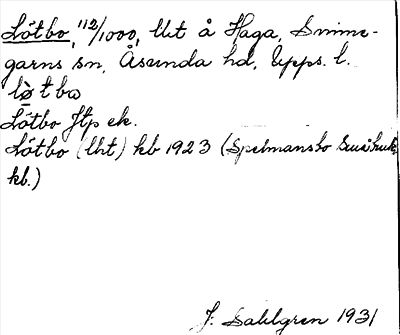 Lötbo, 112/1000, lht å Haga, Simme-
garns sn, Åsunda hd, Upps. l.
lö̀tbω
Lötbo Jfp ek.
Lötbo (lht) kb 1923 (Spelmansbo
kb.)
J. Sahlgren 1931